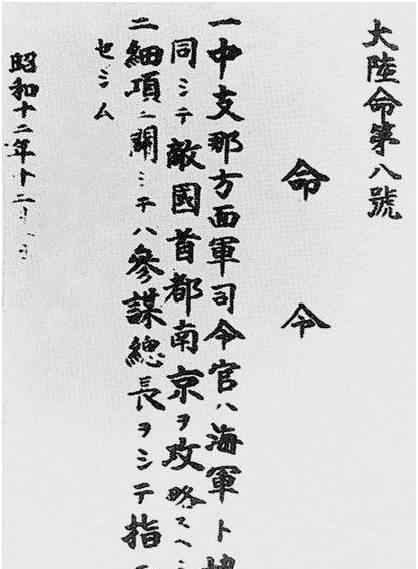 大陸命第八號
命令
一中支那方面軍司令官ハ海軍ト協
同シテ敵國首都南京ヲ攻略スヘシ
二細項ニ關シテハ參謀總長ヲシテ指
セシム
昭和十二年十二